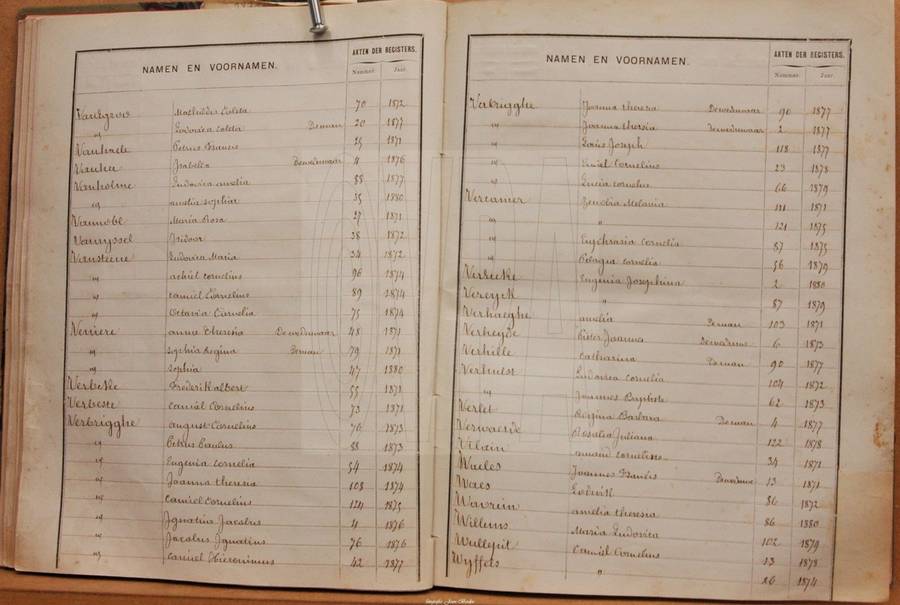 NAMEN EN VOORNAMEN. AKTEN DER REGISTERS.
Nummer. Jaar.
Mathildes Coleta 70 1872
" Ludovica Coleta Deman 20 1877
Petrus Francis 25 1871
Isabella Dewedewaar 4 1876
Vanholme Ludovica amelia 88 1877
" amelia Sophia 35 1880
Maria Rosa 27 1871
Isidoor 38 1872
Vansteene Ludovica Maria 34 1872
" achiel Cornelius 96 1874
" Camiel Cornelius 89 1874
" Octavia Cornelia 75 1874
Verriere anna Theresia Dewedewaar 48 1871
" Sophia Regina Deman 79 1871
" Sophia 47 1880
Verbeke Frederik albert 55 1871
Verbeste Camiel Cornelius 73 1871
Verbrigghe august Cornelius 76 1873
" Petrus Paulus 88 1873
" Eugenia Cornelia 54 1874
" Joanna theresia 108 1874
" Camiel Cornelius 124 1875
" Ignatius Jacobus 4 1876
" Jacobus Ignatius 76 1876
" Camiel Hieronimus 42 1877
NAMEN EN VOORNAMEN. AKTEN DER REGISTERS.
Nummer. Jaar.
Verbrigghe Joanna theresa Dewedewaar 90 1877
" Joanna theresia Dewedewaar 2 1877
" Louis Joseph 118 1877
" Camiel Cornelius 23 1878
" Lucia Cornelia 66 1879
Vercamer Zenobia Melania 111 1871
" " 121 1875
" Euphrasia Cornelia 87 1875
" Pelagia Cornelia 56 1879
Eugenia Josephina 2 1880
Vereyck " 87 1879
Verhaeghe amelia Deman 103 1871
Verheyde Pieter Joannes 6 1873
Verhille Catharina Deman 90 1877
Verhulst Ludovica Cornelia 104 1872
" Joannes Baptiste 62 1873
Verlet Regina Barbara Deman 4 1877
Rosalia Juliana 122 1878
Vilain Cornelius 34 1871
Waeles Joannes 13 1871
Waes Lodewik 86 1872
Wavrein amelia theresia 86 1880
Willems Maria Ludovica 102 1879
Wullepit Camiel Cornelius 13 1878
Wyffels " 16 1874